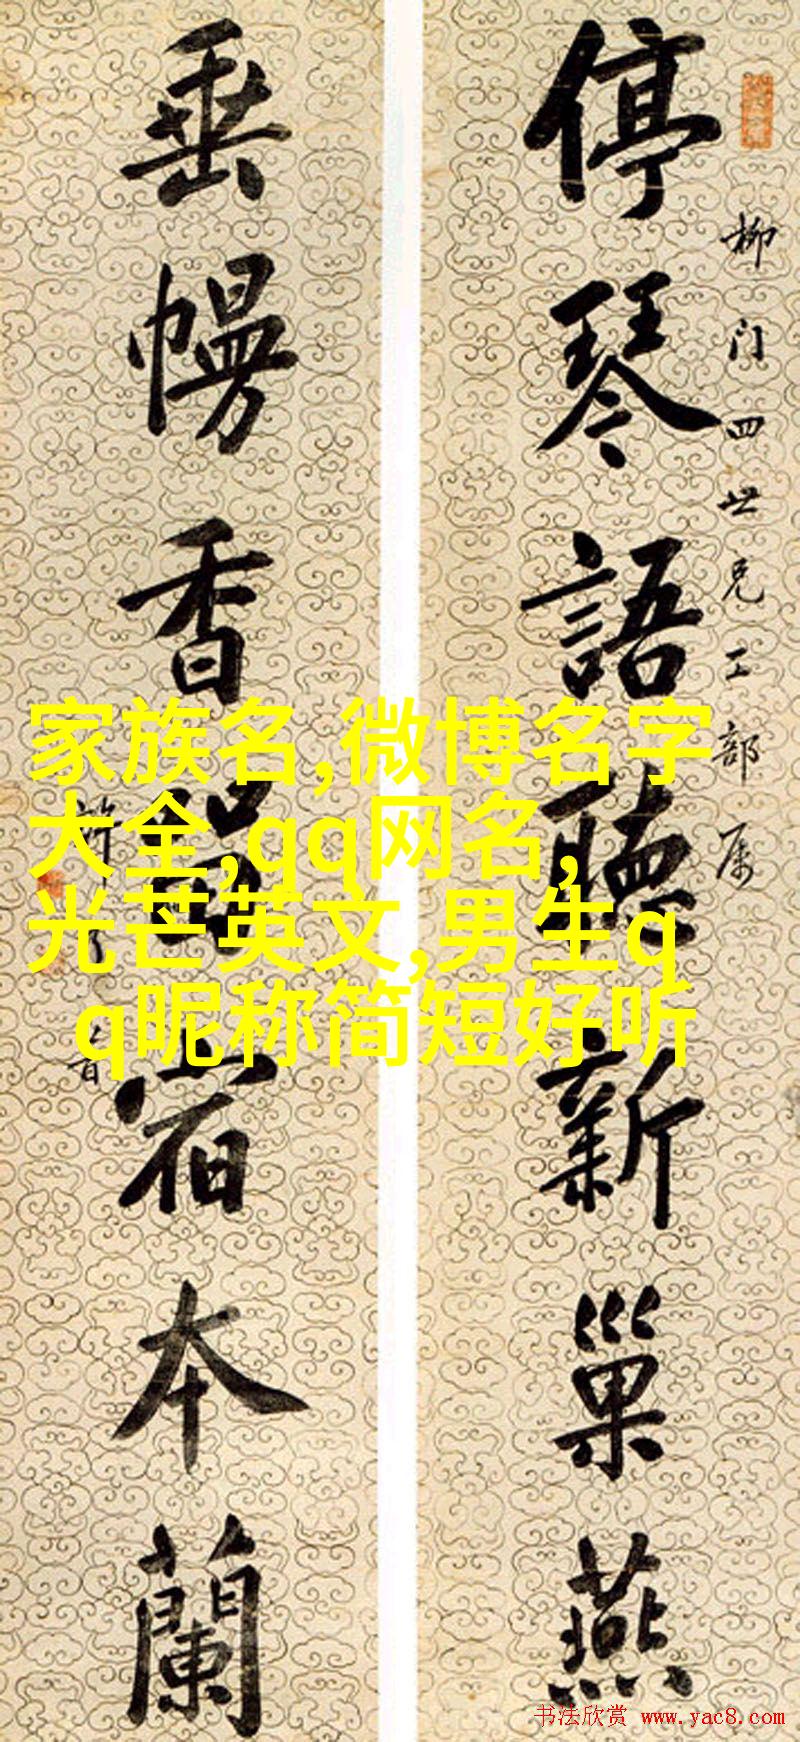 停琴語聽新巢燕
柳门四世兄工部属
垂幔香宿本蘭
許
家族名,微博名字
大全,qq网名,
光芒英文,男生q
q昵称简短好听
书法欣赏 www.yac8.com